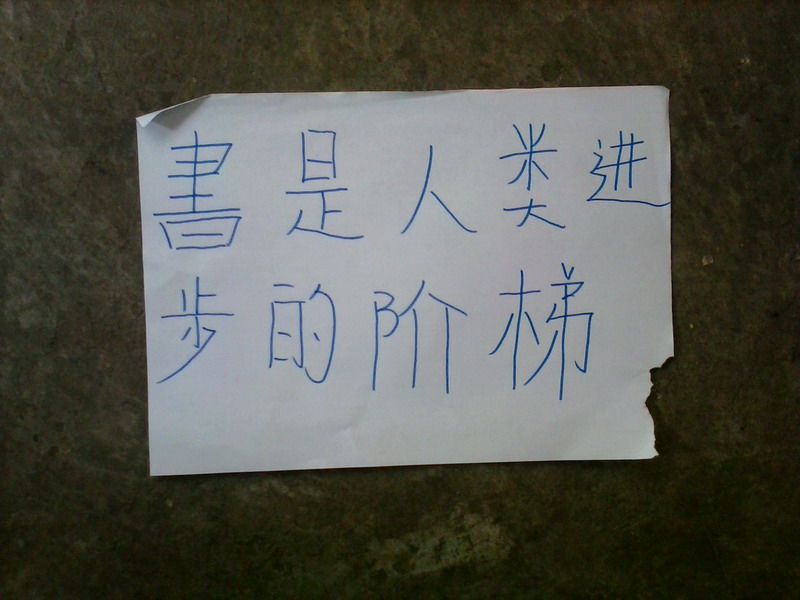 書是人类进
步的阶梯